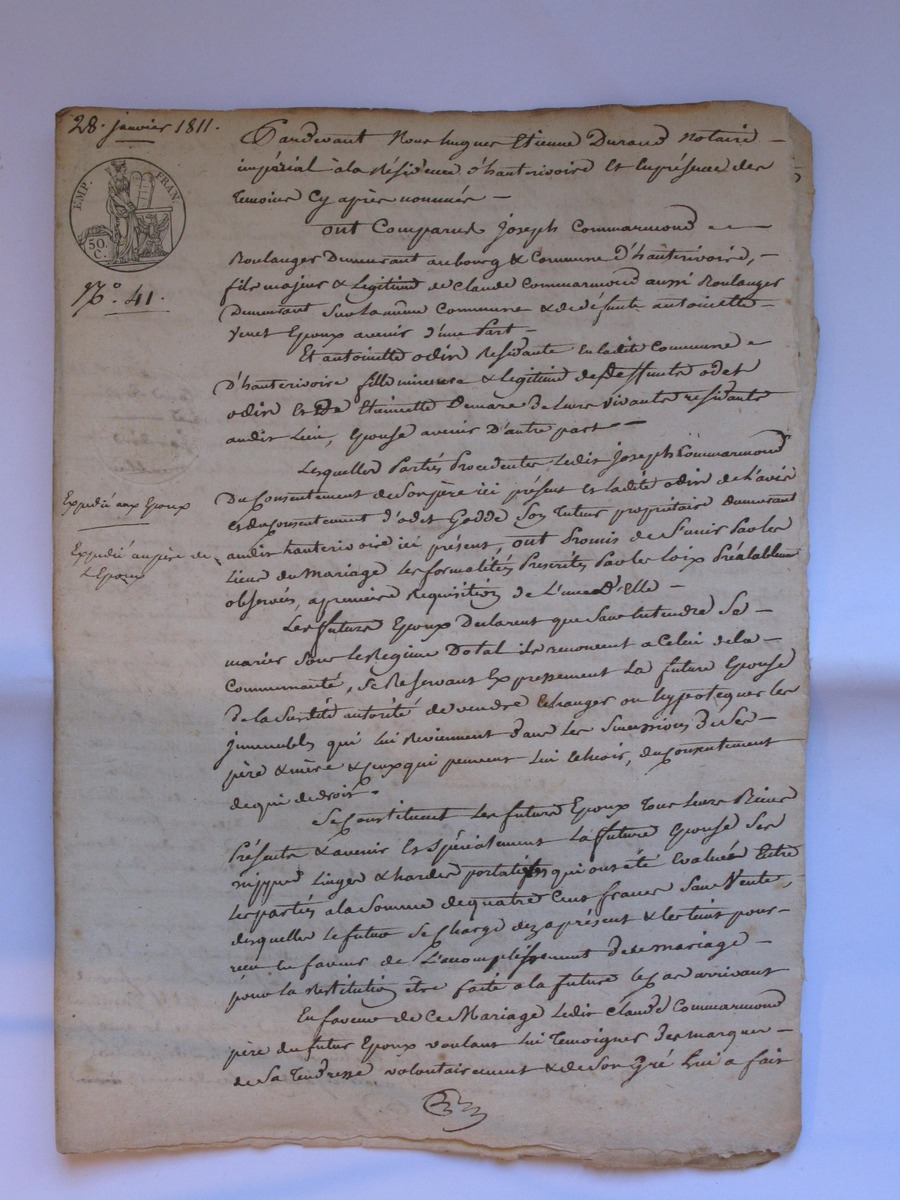 28. janvier 1811.
EMP. FRAN.
50. C.
N.° 41.
Expedié aux Epoux
Expedié au père de
L'Epoux
Pardevant Nous hugues Etienne Durand Notaire
impérial à la Résidence d'hauterivoire Et En présence des
Temoins Cy après nommés
ont Comparus Joseph Commarmond
Boulanger Demeurant au bourg & Commune d'hauterivoire,
fils majeur & Legitime de Claude Commarmond aussi Boulanger
Demeurant Sur la même Commune & de défunte antoinette
Venet Epoux avenir d'une Part
Et antoinette odin Residante En ladite Commune
D'hauterivoire fille mineure & Legitime de deffunts odet
odin Et de Etiennette Demare de Leurs vivants residants
audit Lieu, Epouse avenir D'autre part
Lesquelles Parties Procedentes Ledit Joseph Commarmond
Du Consentement de Son père ici présent Et Ladite odin de L'avis
Et du Consentement d'odet Godde Son Tuteur propriétaire Demeurant
audit hauterivoire ici présent, ont Promis de S'unir Par les
Liens du Mariage Les formalités Prescrites Par les Loix Préalablement
observés, a première Requisition de L'une D'Elle
Les future Epoux Declarent que Sans Entendre Se
marier Sous Le Regime Dotal ils renoncent a Celui de la
Communauté, Se Reservant Expressement La future Epouse
De la Susdite autorité de vendre Echanger ou hypotequer les
immeubles qui Lui Reviennent dans Les Successions de Ses
père & mère & Ceux qui peuvent Lui Echeoir, du Consentement
de qui de droit.
Se Constituent Les future Epoux Tous Leurs Biens
Présents & avenir Et Spécialement La future Epouse Ses
nippes Linges & hardes portatifs qui ont été Evalués Entre
Les parties a la Somme de quatre Cent francs Sans Vente,
desquelles Le futur Se Charge dez aprésent & les tient pour
reçu En faveur de L'accomplissement de ce mariage
pour la Restitution être faite a la future le Cas arrivant
En faveur de Ce Mariage Ledit Claude Commarmond
père du futur Epoux voulant Lui Temoigner Des marques
de Sa Tendresse volontairement & de Son Gré Lui a fait